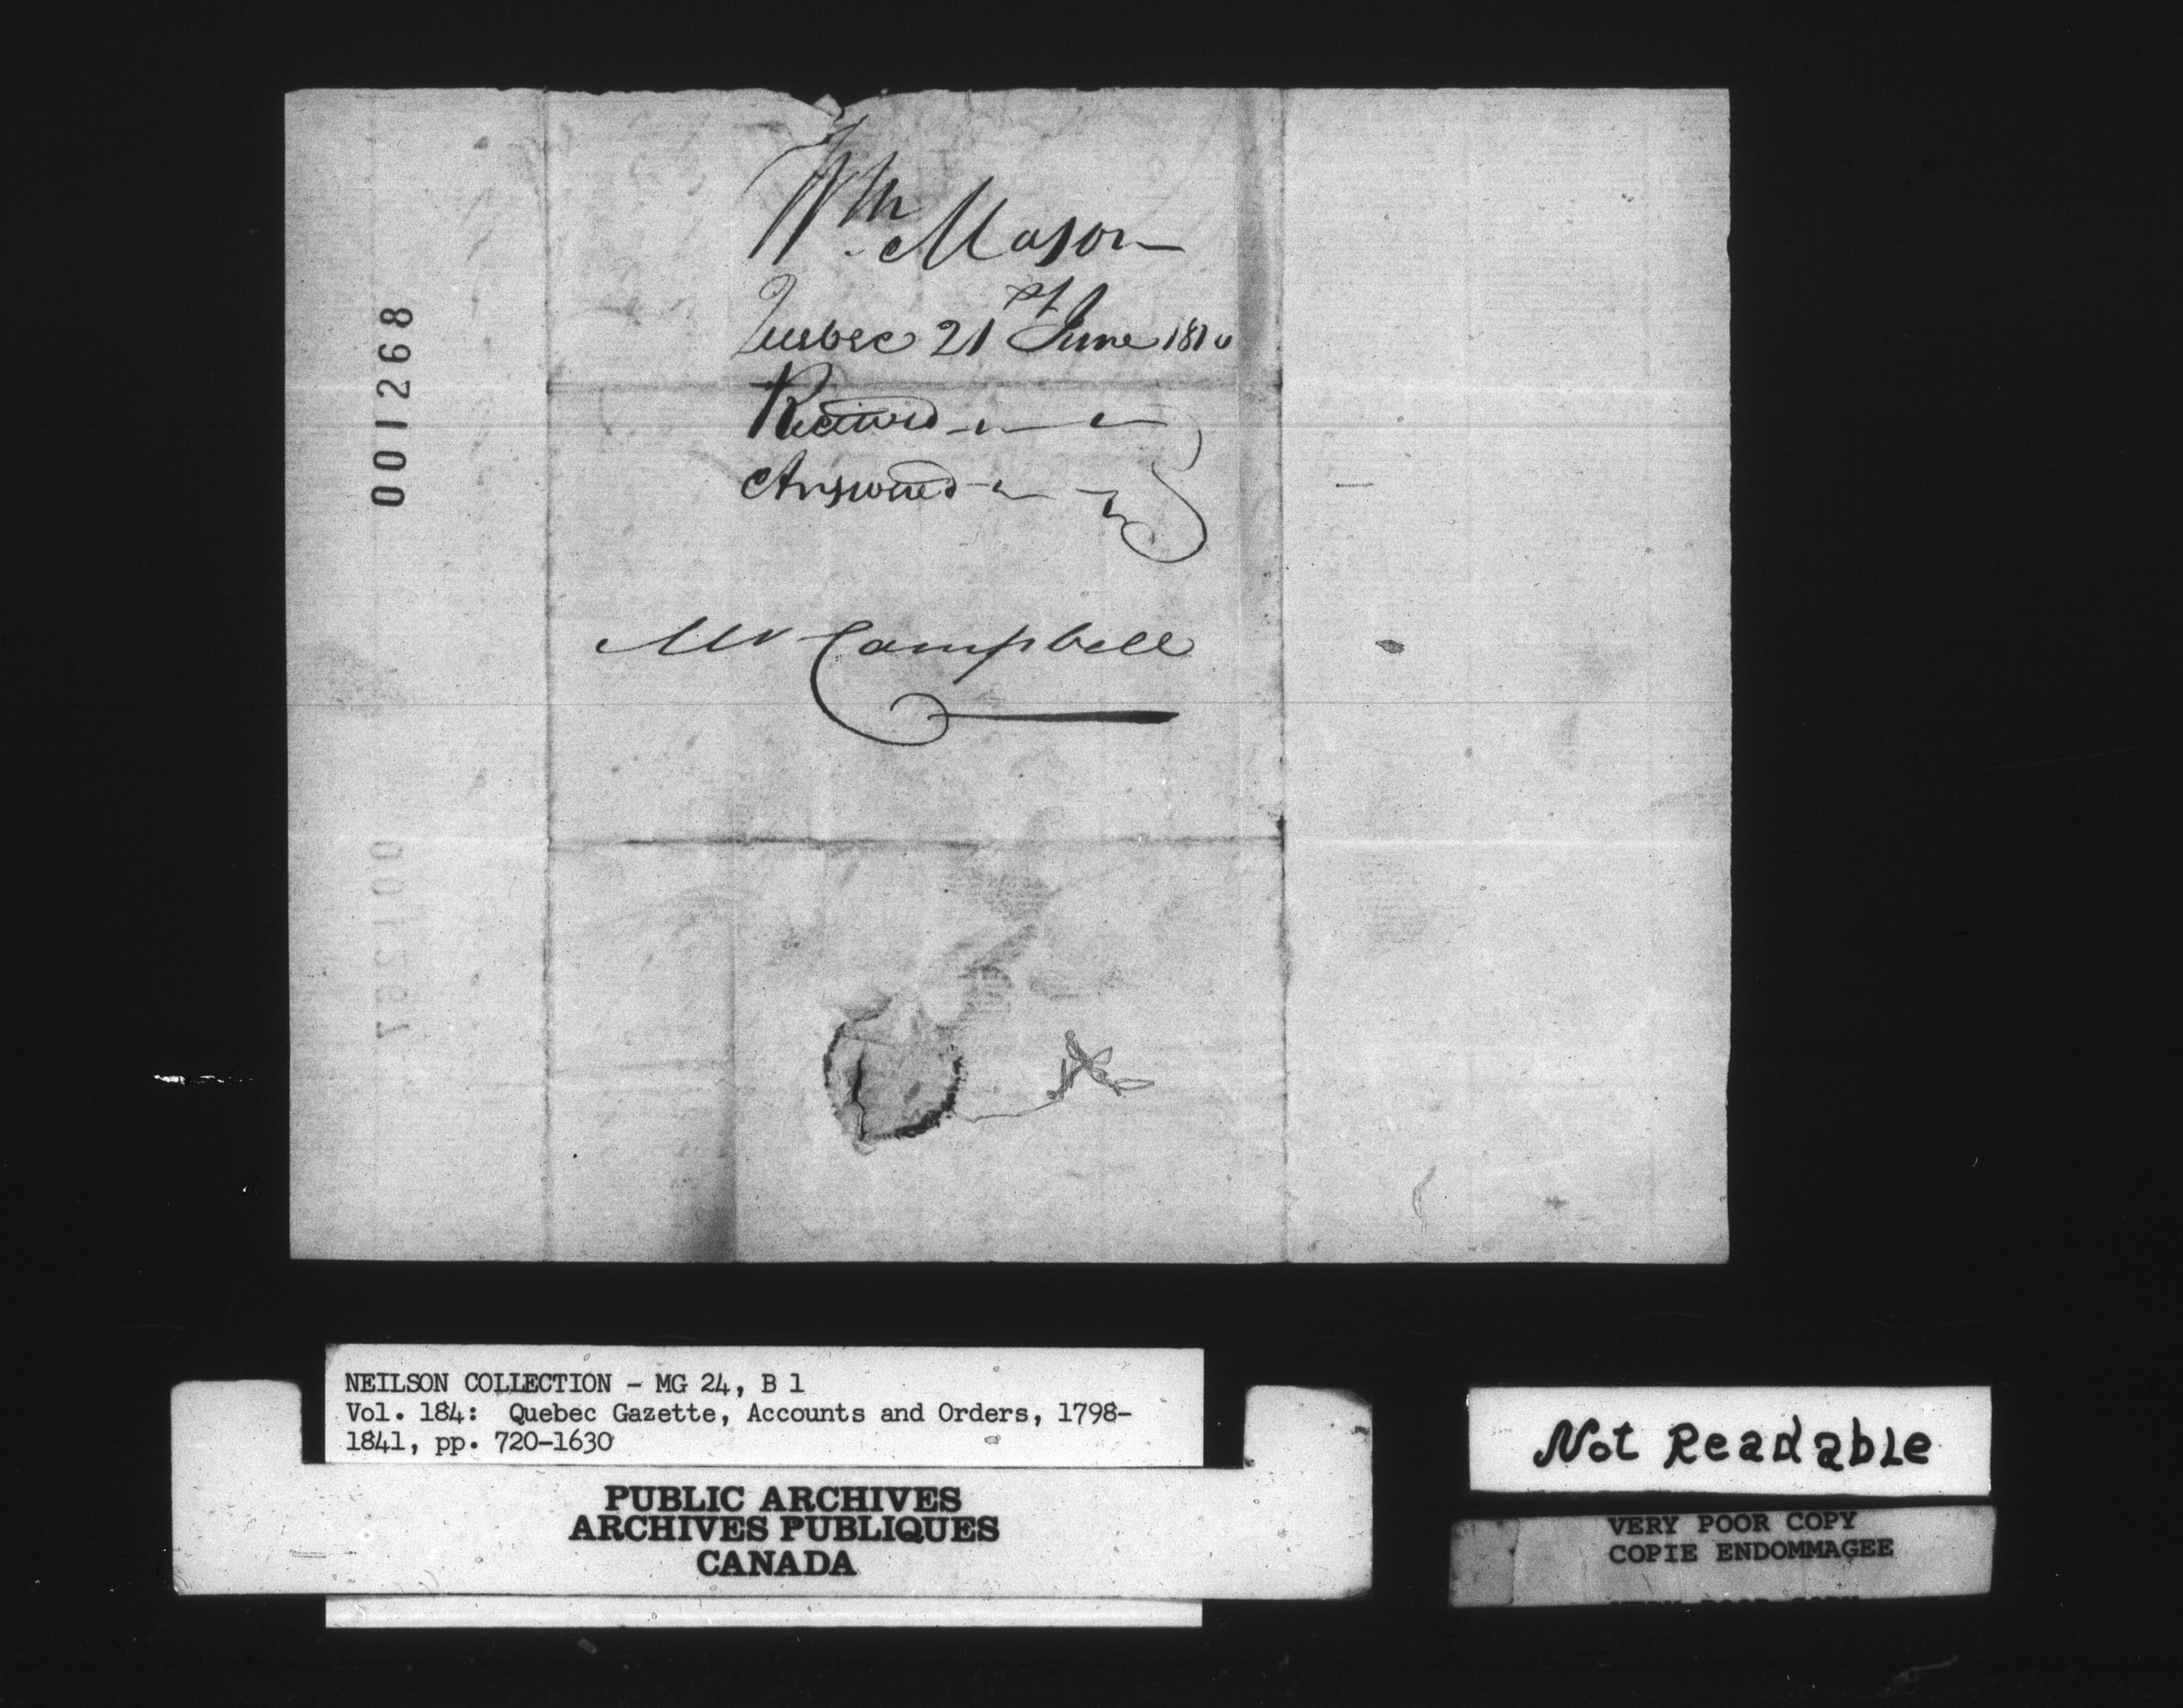 Wm Mason
Quebec 21st June 1810
Received
Answered
Mr Campbell
001268
001267
NEILSON COLLECTION - MG 24, B 1
Vol. 184: Quebec Gazette, Accounts and Orders, 1798-
1841, pp. 720-1630
PUBLIC ARCHIVES
ARCHIVES PUBLIQUES
CANADA
Not Readable
VERY POOR COPY
COPIE ENDOMMAGEE